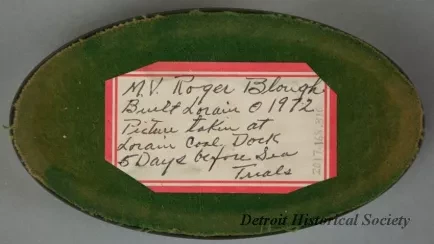 M.V. Roger Blough
Built Lorain O 1972
Picture taken at
Lorain Coal Dock
5 Days before Sea
Trials
Detroit Historical Society